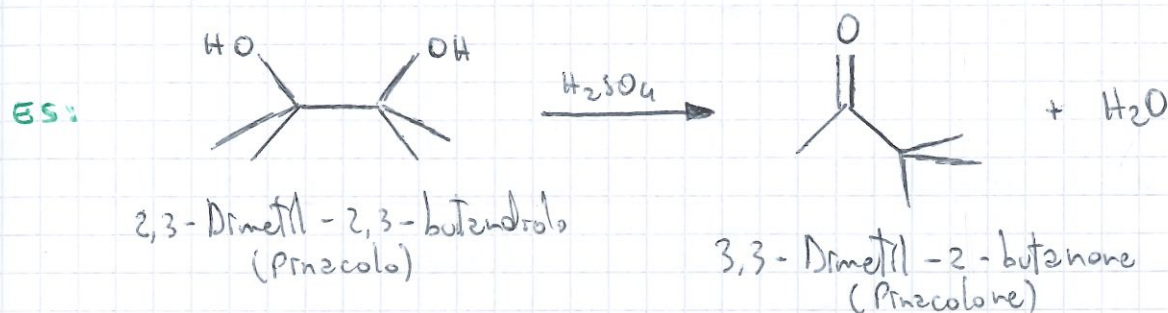 ES:
HO OH
H₂SO₄
O
+ H₂O
2,3-Dimetil-2,3-butandiolo
(Pinacolo)
3,3-Dimetil-2-butanone
(Pinacolone)